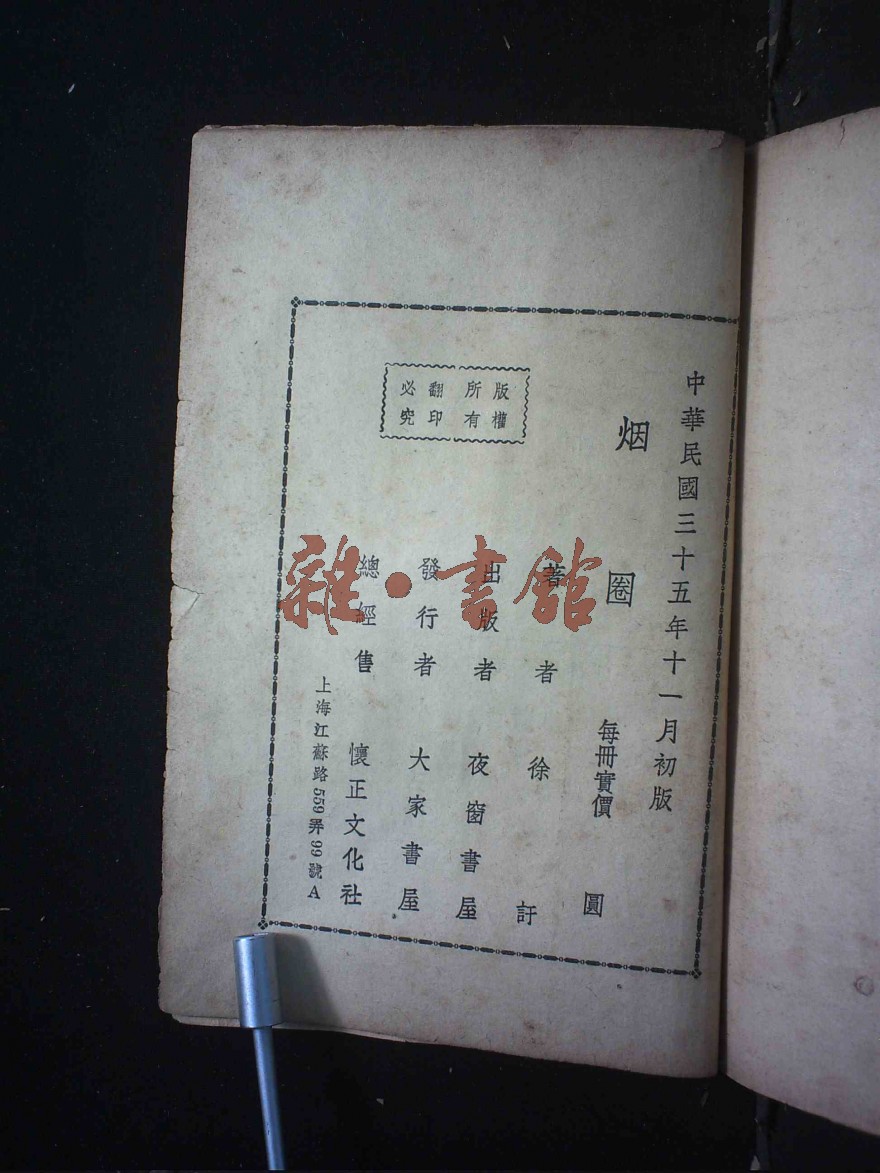 中華民國三十五年十一月初版
烟圈
每冊實價　圓
著者　徐訏
出版者　夜窗書屋
發行者　大家書屋
總經售　懷正文化社
上海江蘇路559弄99號A
版權
所有
翻印
必究
雜·書館